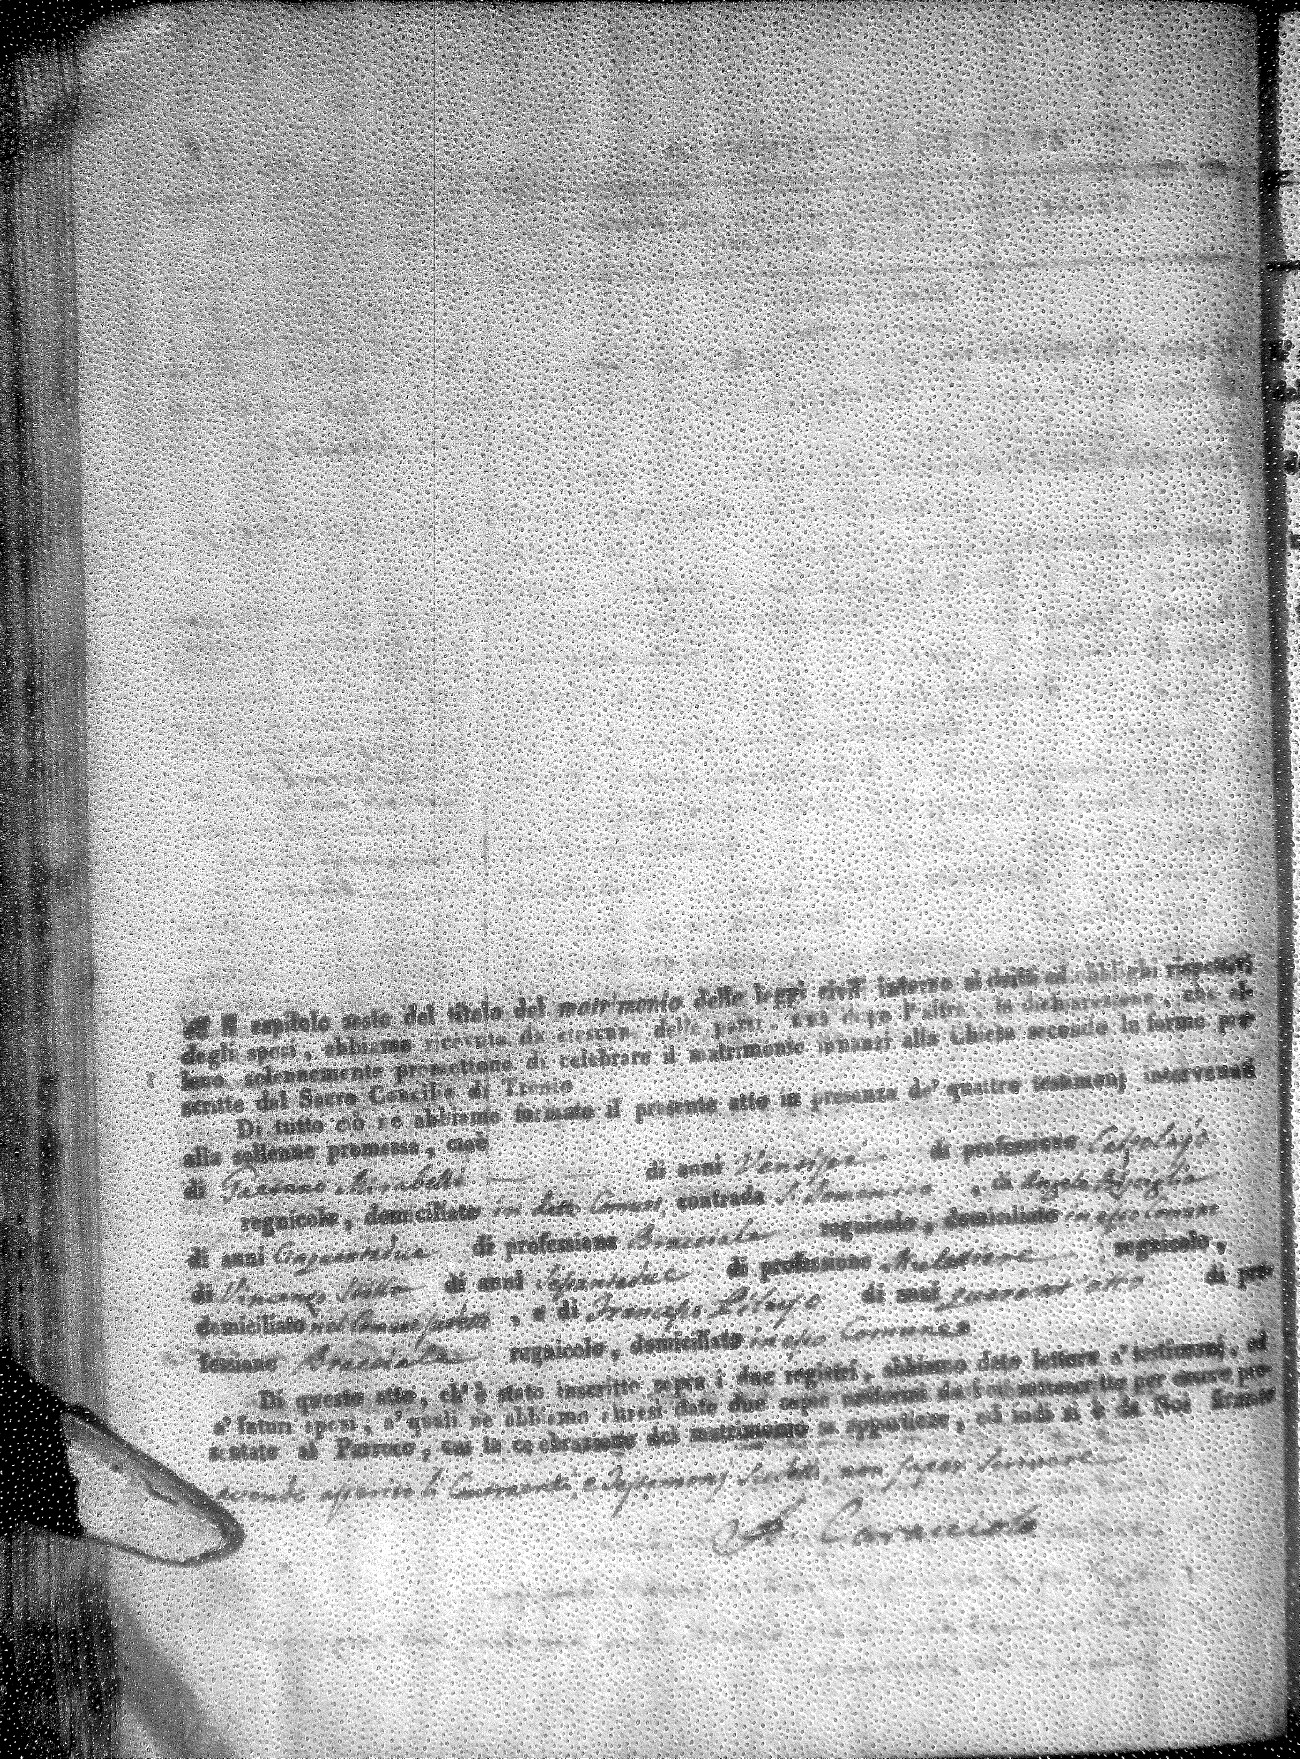 il capitolo sesto del titolo del matrimonio delle leggi civili intorno ai dritti ed obblighi rispettivi
degli sposi, abbiamo ricevuta da ciascuna delle parti, una dopo l'altra, la dichiarazione, che el-
leno solennemente promettono di celebrare il matrimonio innanzi alla Chiesa secondo le forme pre-
scritte dal Sacro Concilio di Trento
Di tutto ciò ne abbiamo formato il presente atto in presenza de' quattro testimonj intervenuti
alla solenne promessa, cioè
di Gaetano Mirabelli di anni di professione
regnicolo, domiciliato in detto Comune, contrada S. Domenico, di Angelo
di anni Cinquantadue di professione Bracciale regnicolo, domiciliato in esso Comune
di Vincenzo di anni Sessantadue di professione regnicolo,
domiciliato nel Comune, e di Francesco di anni quarant'otto di pro-
fessione Bracciale regnicolo, domiciliato in esso Comune
Di questo atto, ch'è stato inscritto sopra i due registri, abbiamo dato lettura a' testimonj, ed
a' futuri sposi, a' quali ne abbiamo altresì date due copie uniformi da Noi sottoscritte per essere pre-
sentate al Parroco, cui la celebrazione del matrimonio si appartiene, ed indi si è da Noi firmato
avendo asserito li Contraenti, e Testimonj, non saper scrivere
Caracciolo